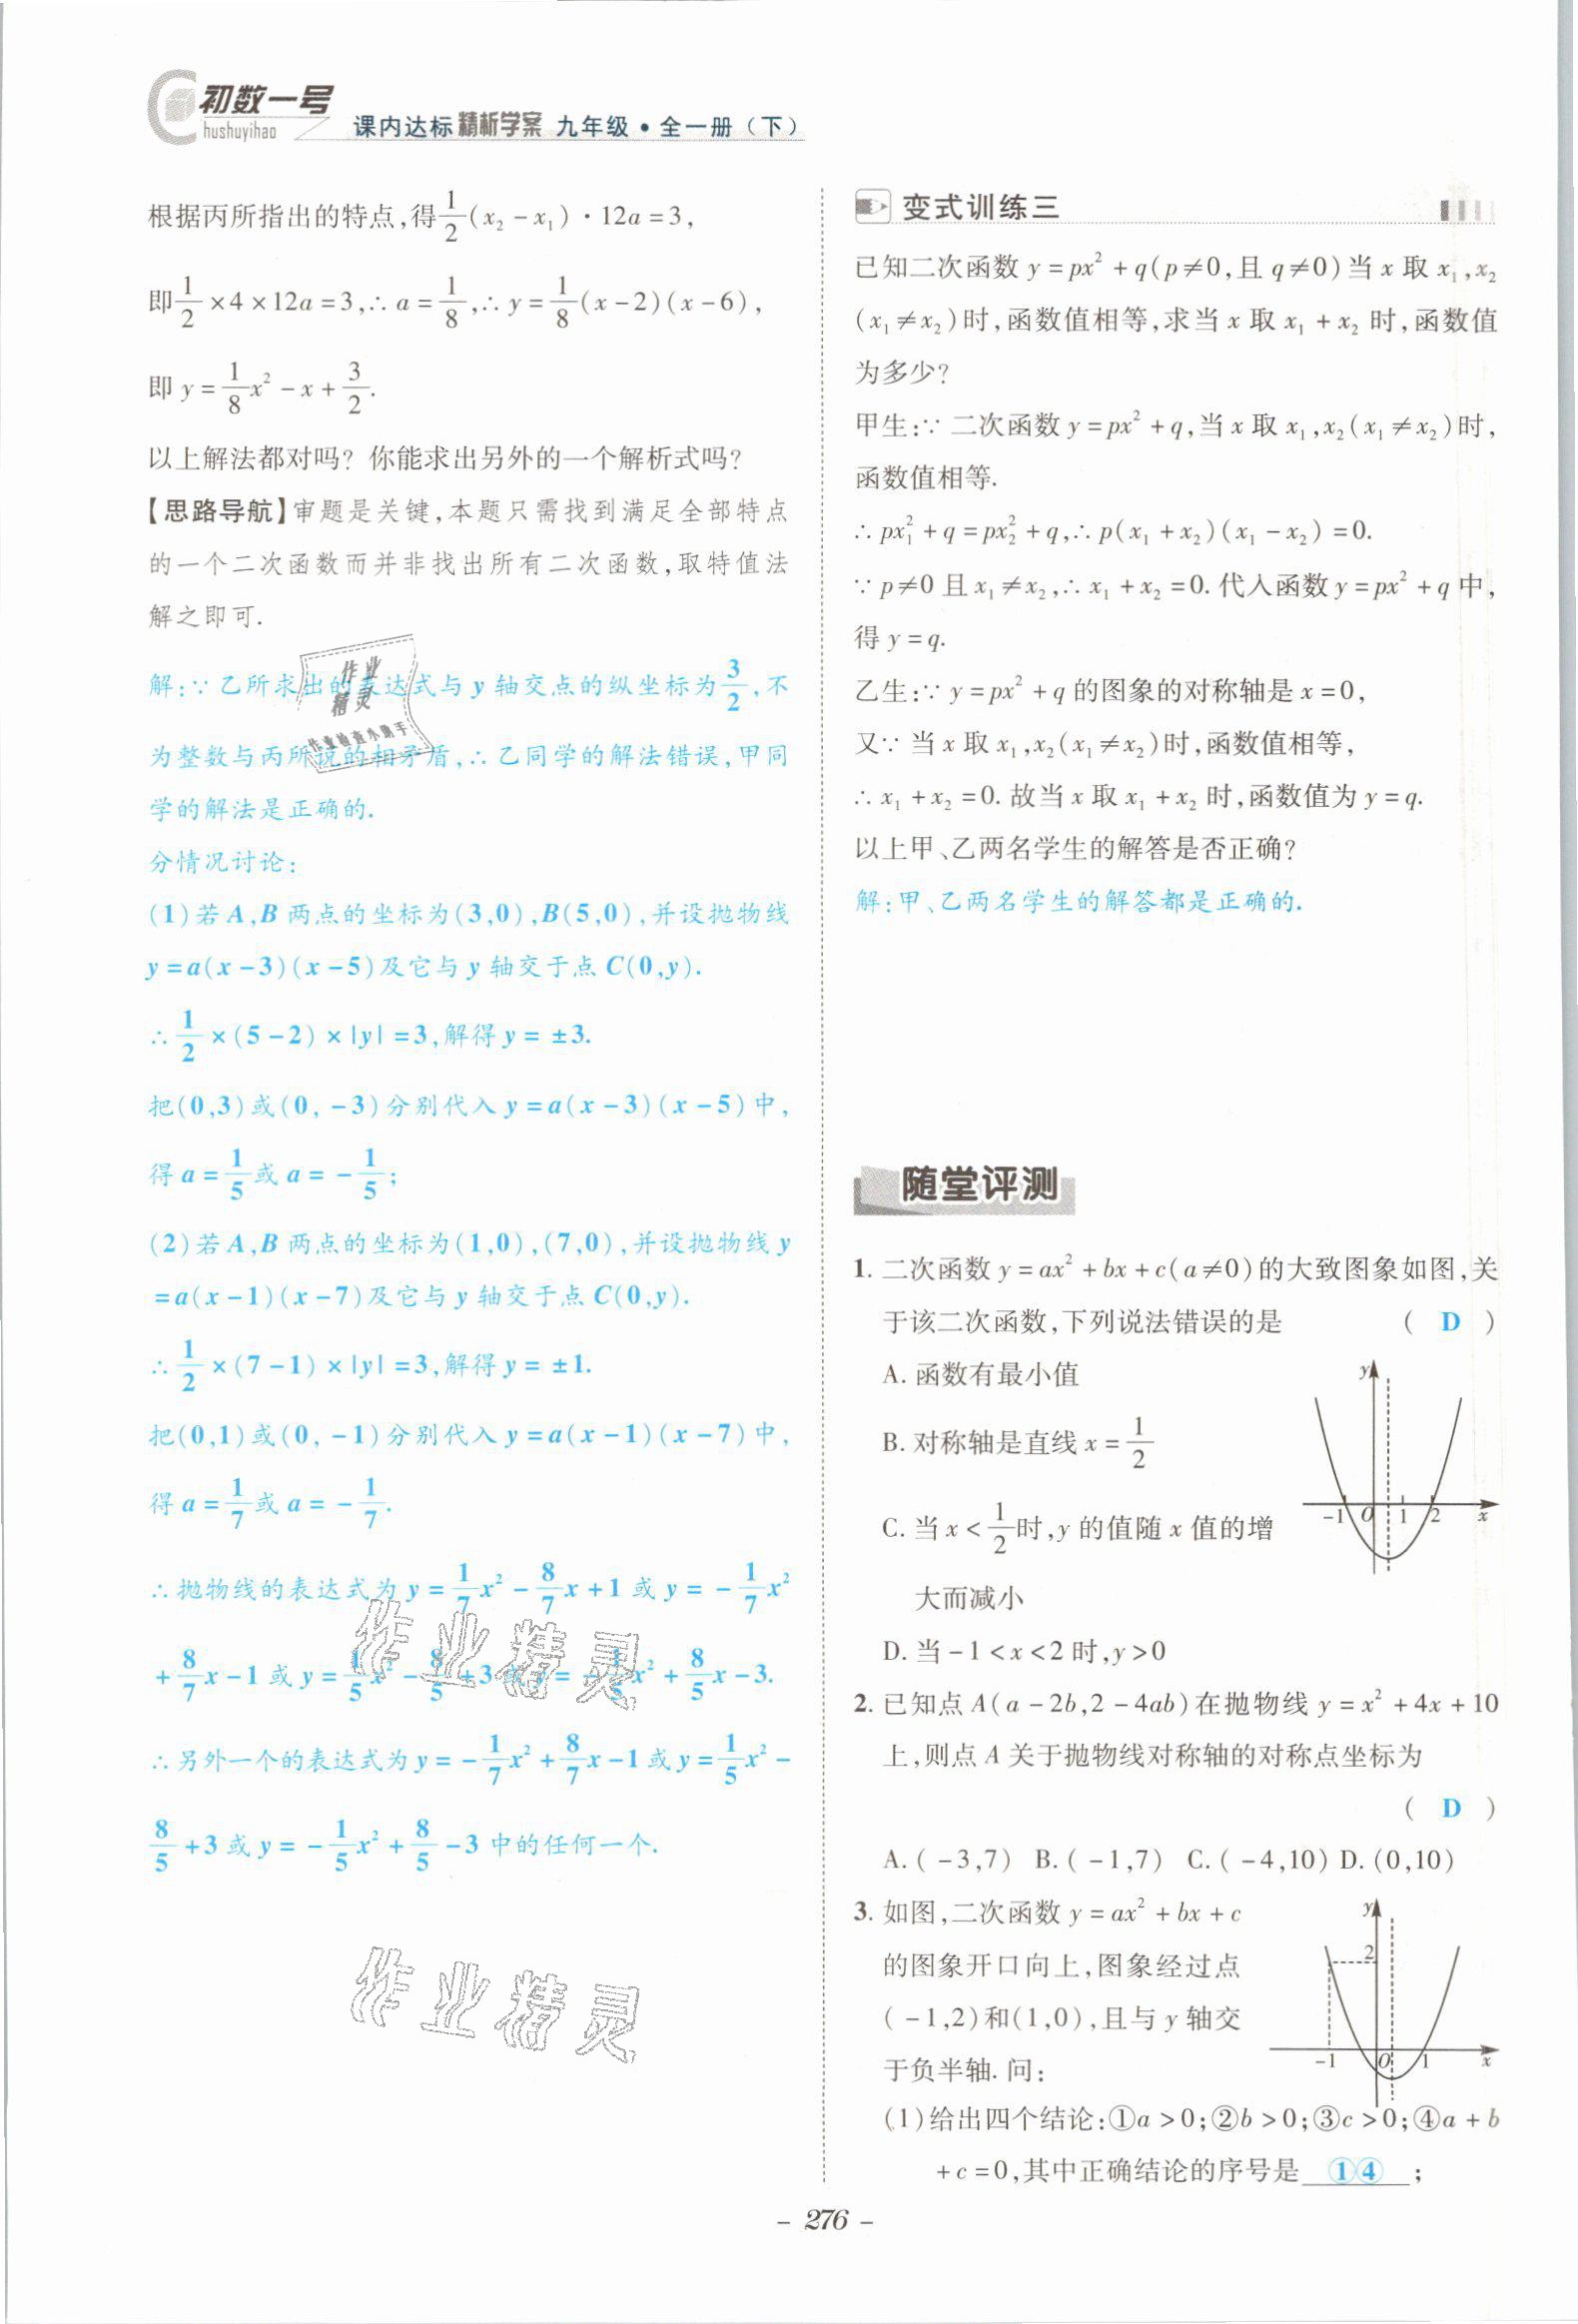 初数一号
hushuyihao
课内达标 精析学案 九年级·全一册(下)
根据丙所指出的特点,得1/2(x₂-x₁)·12a=3,
即1/2×4×12a=3,∴a=1/8,∴y=1/8(x-2)(x-6),
即y=1/8x²-x+3/2.
以上解法都对吗? 你能求出另外的一个解析式吗?
【思路导航】审题是关键,本题只需找到满足全部特点
的一个二次函数而并非找出所有二次函数,取特值法
解之即可.
解:∵乙所求出的表达式与y轴交点的纵坐标为3/2,不
为整数与丙所说的相矛盾,∴乙同学的解法错误,甲同
学的解法是正确的.
分情况讨论:
(1)若A,B两点的坐标为(3,0),B(5,0),并设抛物线
y=a(x-3)(x-5)及它与y轴交于点C(0,y).
∴1/2×(5-2)×|y|=3,解得y=±3.
把(0,3)或(0,-3)分别代入y=a(x-3)(x-5)中,
得a=1/5或a=-1/5;
(2)若A,B两点的坐标为(1,0),(7,0),并设抛物线y
=a(x-1)(x-7)及它与y轴交于点C(0,y).
∴1/2×(7-1)×|y|=3,解得y=±1.
把(0,1)或(0,-1)分别代入y=a(x-1)(x-7)中,
得a=1/7或a=-1/7.
∴抛物线的表达式为y=1/7x²-8/7x+1或y=-1/7x²
+8/7x-1或y=1/5x²-8/5+3或y=-1/5x²+8/5x-3.
∴另外一个的表达式为y=-1/7x²+8/7x-1或y=1/5x²-
8/5+3或y=-1/5x²+8/5-3中的任何一个.
作业精灵
作业检查小助手
作业精灵
作业精灵
变式训练三
已知二次函数y=px²+q(p≠0,且q≠0)当x取x₁,x₂
(x₁≠x₂)时,函数值相等,求当x取x₁+x₂时,函数值
为多少?
甲生:∵二次函数y=px²+q,当x取x₁,x₂(x₁≠x₂)时,
函数值相等.
∴px₁²+q=px₂²+q,∴p(x₁+x₂)(x₁-x₂)=0.
∵p≠0且x₁≠x₂,∴x₁+x₂=0.代入函数y=px²+q中,
得y=q.
乙生:∵y=px²+q的图象的对称轴是x=0,
又∵当x取x₁,x₂(x₁≠x₂)时,函数值相等,
∴x₁+x₂=0.故当x取x₁+x₂时,函数值为y=q.
以上甲、乙两名学生的解答是否正确?
解:甲、乙两名学生的解答都是正确的.
随堂评测
1. 二次函数y=ax²+bx+c(a≠0)的大致图象如图,关
于该二次函数,下列说法错误的是 ( D )
A. 函数有最小值
B. 对称轴是直线x=1/2
C. 当x<1/2时,y的值随x值的增
大而减小
D. 当-1<x<2时,y>0
y
-1 O 1 2 x
2. 已知点A(a-2b,2-4ab)在抛物线y=x²+4x+10
上,则点A关于抛物线对称轴的对称点坐标为
( D )
A. (-3,7) B. (-1,7) C. (-4,10) D. (0,10)
3. 如图,二次函数y=ax²+bx+c
的图象开口向上,图象经过点
(-1,2)和(1,0),且与y轴交
于负半轴.问:
y
2
-1 O 1 x
(1)给出四个结论:①a>0;②b>0;③c>0;④a+b
+c=0,其中正确结论的序号是 ①④ ;
- 276 -